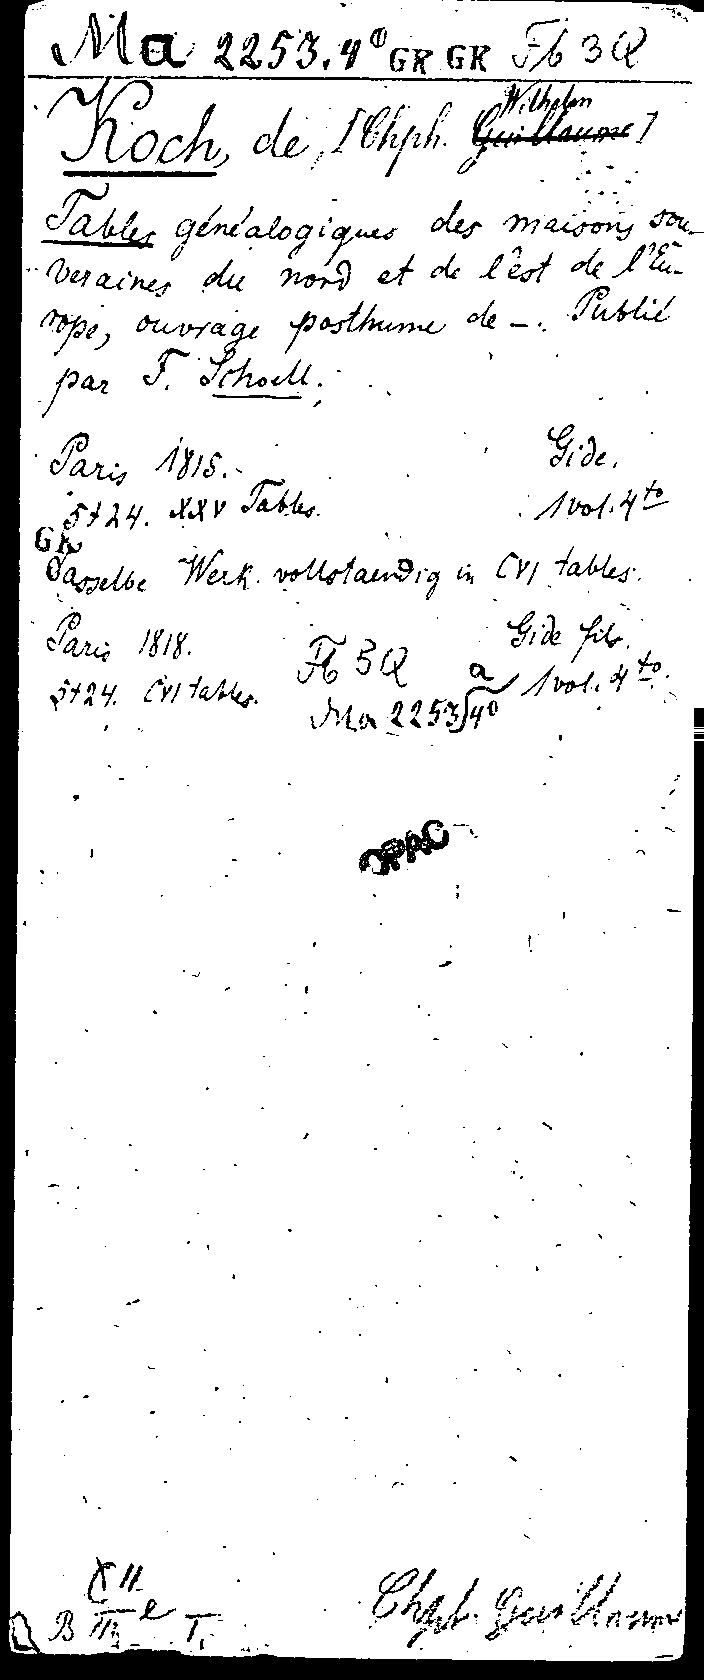 Ma 2253.4⁰ GK GK Fb 3 Q
Wilhelm
Koch, de, [Chph. Guillaume]
Tables généalogiques des maisons sou-
veraines du nord et de l'est de l'Eu-
rope, ouvrage posthume de —. Publié
par F. Schoell.
Paris 1815. Gide.
5+24. XXV Tables. 1 vol. 4to
GK
Dasselbe Werk vollstaendig in CVI tables.
Paris 1818. Gide fils.
Fb 3 Q
5+24. CVI tables. 1 vol. 4to.
Ma 2253 a 4⁰
OPAC
XII
B III e T.
Chph. Guillaume